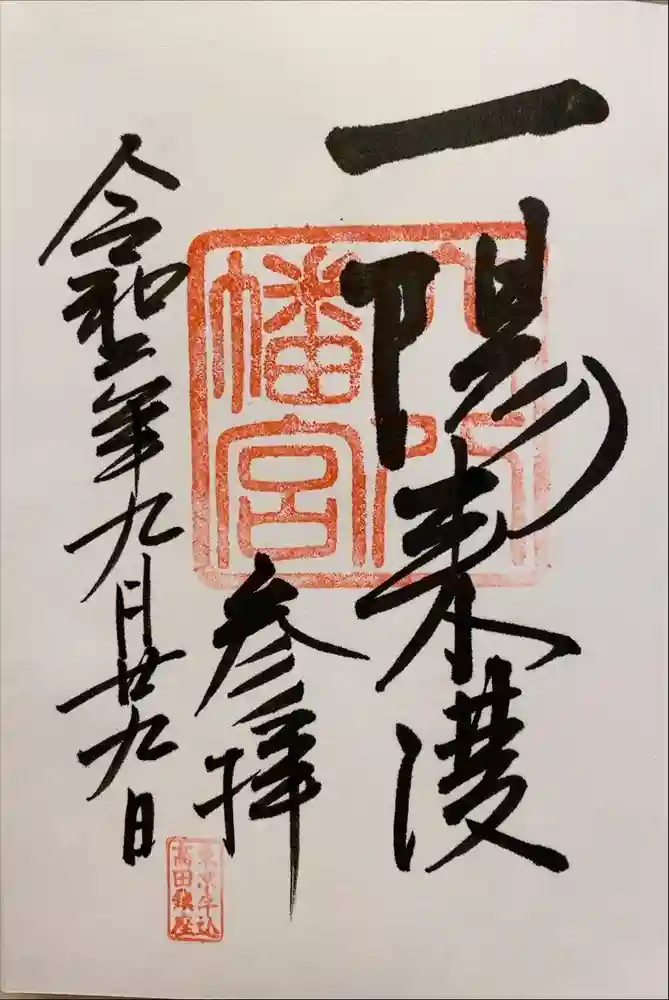 一陽来復
参拝
令和二年九月廿九日
八幡宮
東京牛込
高田鎮座